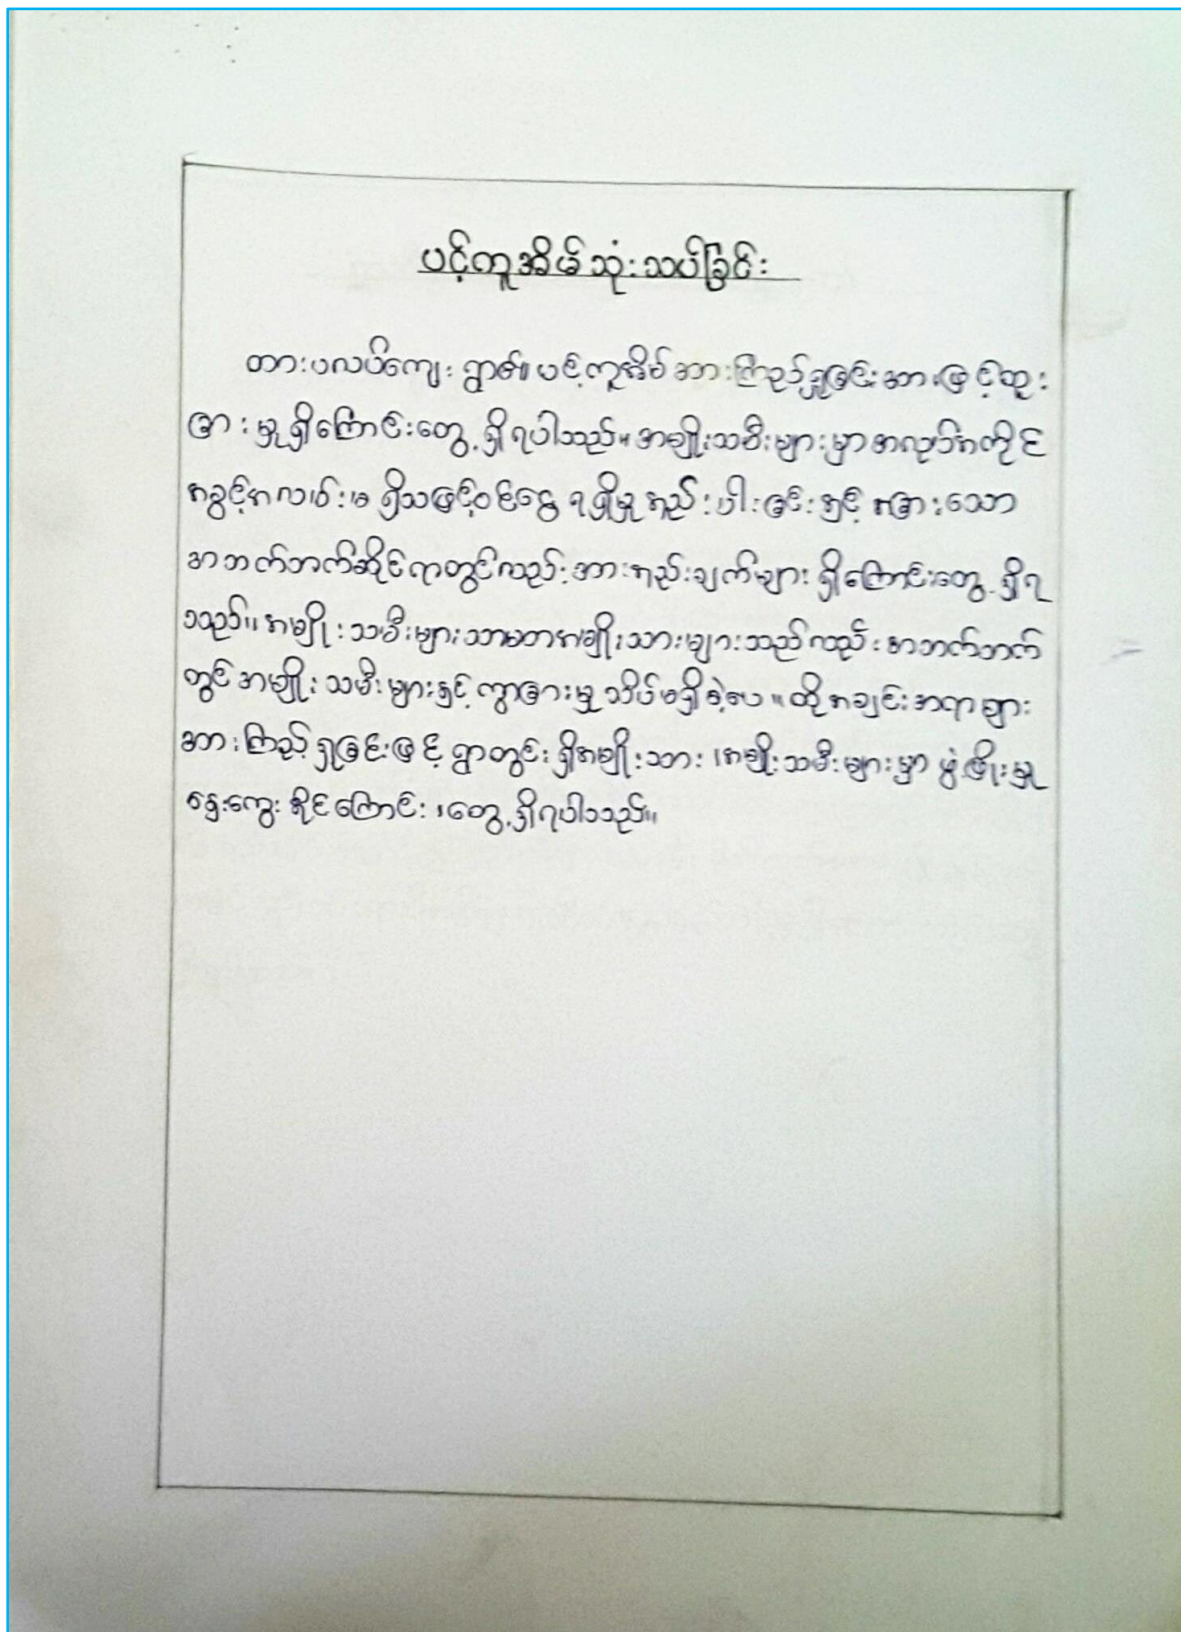 ပင့်ကူအိမ်သုံးသပ်ခြင်း
တားပလပ်ကျေးရွာ၏ ပင့်ကူအိမ်အားကြည့်ရှုခြင်းအားဖြင့်ထူး
ခြားမှုရှိကြောင်းတွေ့ရှိရပါသည်။ အမျိုးသမီးများမှာအလုပ်အကိုင်
အခွင့်အလမ်းမရှိသဖြင့်ဝင်ငွေရရှိမှုနည်းပါးခြင်းနှင့် အခြားသော
အာဘက်ဘက်ဆိုင်ရာတွင်လည်းအားနည်းချက်များ ရှိကြောင်းတွေ့ရှိရ
သည်။ အမျိုးသမီးများသာမကအမျိုးသားများသည်လည်းအာဘက်ဘက်
တွင်အမျိုးသမီးများနှင့်ကွာခြားမှုသိပ်မရှိခဲ့ပေ။ ထိုအချင်းအရာများ
အားကြည့်ရှုခြင်းဖြင့် ရွာတွင်းရှိအမျိုးသား၊အမျိုးသမီးများမှာ ဖွံ့ဖြိုးမှု
နှေးကွေးနိုင်ကြောင်း၊တွေ့ရှိရပါသည်။